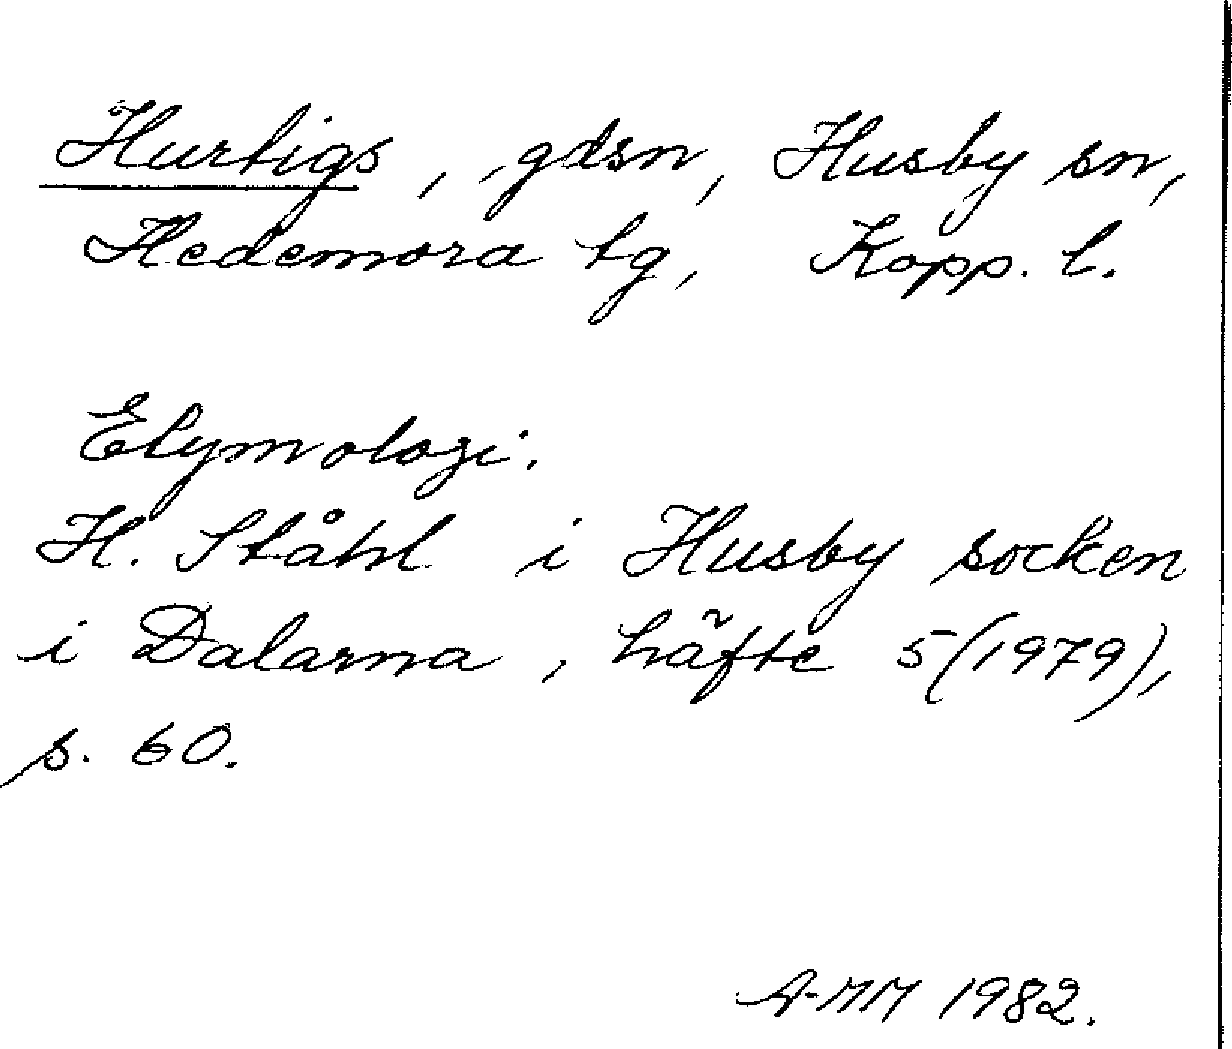 Hurtigs, gdsn, Husby sn,
Hedemora tg, Kopp. l.
Etymologi.
H. Ståhl i Husby socken
i Dalarna, häfte 5(1979),
s. 60.
A-MM 1982.